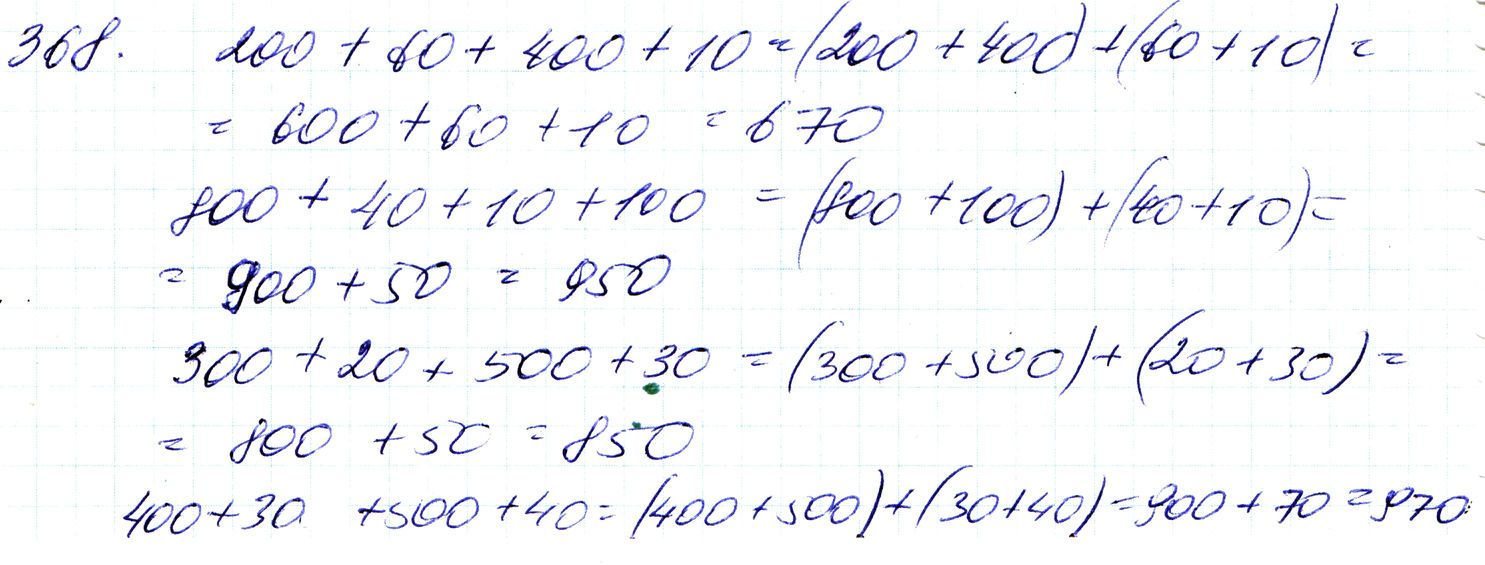 368. 200 + 60 + 400 + 10 = (200 + 400) + (60 + 10) =
= 600 + 60 + 10 = 670
800 + 40 + 10 + 100 = (800 + 100) + (40 + 10) =
= 900 + 50 = 950
300 + 20 + 500 + 30 = (300 + 500) + (20 + 30) =
= 800 + 50 = 850
400 + 30 + 500 + 40 = (400 + 500) + (30 + 40) = 900 + 70 = 970